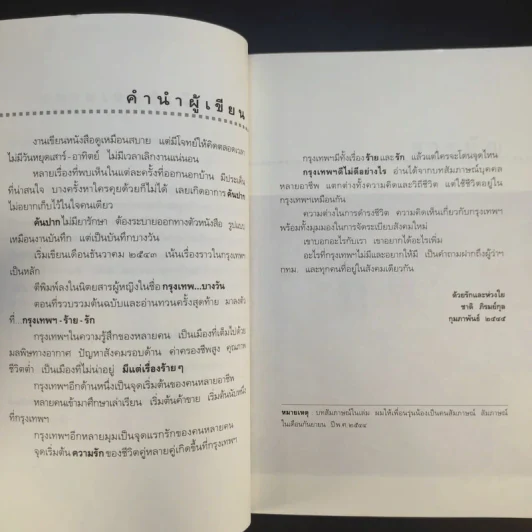 คำนำผู้เขียน
งานเขียนหนังสือดูเหมือนสบาย แต่มีโจทย์ให้คิดตลอดเวลา
ไม่มีวันหยุดเสาร์-อาทิตย์ ไม่มีเวลาเลิกงานแน่นอน
หลายเรื่องที่พบเห็นในแต่ละครั้งที่ออกนอกบ้าน มีประเด็น
ที่น่าสนใจ บางครั้งหาใครคุยด้วยก็ไม่ได้ เลยเกิดอาการคันปาก
ไม่อยากเก็บไว้ในใจคนเดียว
คันปากไม่มียารักษา ต้องระบายออกทางตัวหนังสือ รูปแบบ
เหมือนงานบันทึก แต่เป็นบันทึกบางวัน
เริ่มเขียนเดือนธันวาคม ๒๕๔๓ เน้นเรื่องราวในกรุงเทพฯ
เป็นหลัก
ตีพิมพ์ลงในนิตยสารผู้หญิงในชื่อ กรุงเทพ...บางวัน
ตอนที่รวบรวมต้นฉบับและอ่านทวนครั้งสุดท้าย มาลงตัว
ที่ กรุงเทพฯ - ร้าย - รัก
กรุงเทพฯในความรู้สึกของหลายคน เป็นเมืองที่เต็มไปด้วย
มลพิษทางอากาศ ปัญหาสังคมรอบด้าน ค่าครองชีพสูง คุณภาพ
ชีวิตต่ำ เป็นเมืองที่ไม่น่าอยู่ มีแต่เรื่องร้ายๆ
กรุงเทพฯอีกด้านหนึ่งเป็นจุดเริ่มต้นของคนหลายอาชีพ
หลายคนเข้ามาศึกษาเล่าเรียน เริ่มต้นค้าขาย เริ่มต้นนับหนึ่ง
ที่กรุงเทพฯ
กรุงเทพฯอีกหลายมุมเป็นจุดแรกรักของคนหลายคน
จุดเริ่มต้นความรักของชีวิตคู่หลายคู่เกิดขึ้นที่กรุงเทพฯ
กรุงเทพฯมีทั้งเรื่องร้ายและรัก แล้วแต่ใครจะโดนจุดไหน
กรุงเทพฯดีไม่ดีอย่างไร อ่านได้จากบทสัมภาษณ์บุคคล
หลายอาชีพ แตกต่างทั้งความคิดและวิถีชีวิต แต่ใช้ชีวิตอยู่ใน
กรุงเทพฯเหมือนกัน
ความต่างในการดำรงชีวิต ความคิดเห็นเกี่ยวกับกรุงเทพฯ
พร้อมทั้งมุมมองในการจัดระเบียบสังคมใหม่
เขาบอกอะไรกับเรา เขาอยากได้อะไรเพิ่ม
อะไรที่กรุงเทพฯไม่มีและอยากให้มี เป็นคำถามฝากถึงผู้ว่าฯ
กทม. และทุกคนที่อยู่ในสังคมเดียวกัน
ด้วยรักและห่วงใย
ชาลี ภิรมย์กุล
กุมภาพันธ์ ๒๕๔๕
หมายเหตุ บทสัมภาษณ์ในเล่ม ผมให้เพื่อนรุ่นน้องเป็นคนสัมภาษณ์ สัมภาษณ์
ในเดือนกันยายน ปีพ.ศ.๒๕๔๔